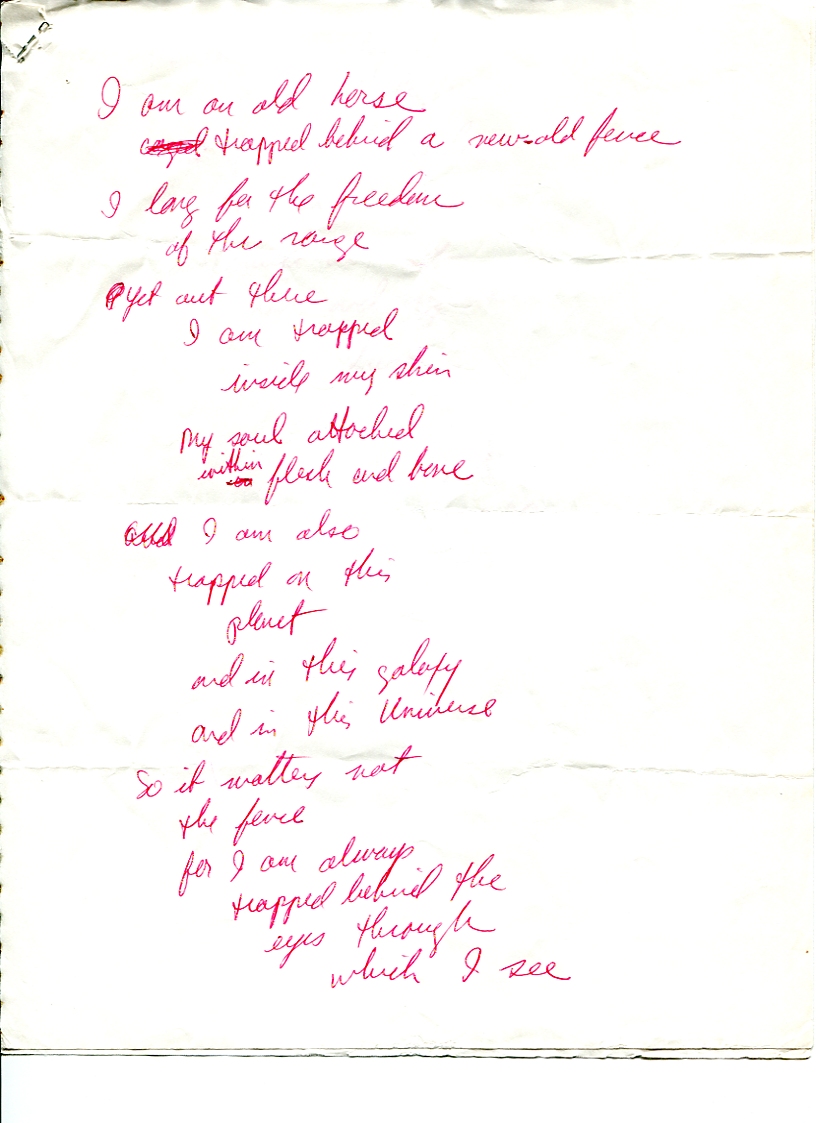 I am an old horse
trapped behind a new-old fence
I long for the freedom
of the range
yet out there
I am trapped
inside my skin
My soul attached
within flesh and bone
I am also
trapped on this
planet
and in this galaxy
and in this Universe
So it matters not
the fence
for I am always
trapped behind the
eyes through
which I see